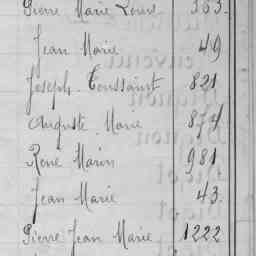 Pierre Marie Louis 363.
Jean Marie 49
Joseph Toussaint 821
Auguste Marie 874
René Marin 981
Jean Marie 43.
Pierre Jean Marie 1222